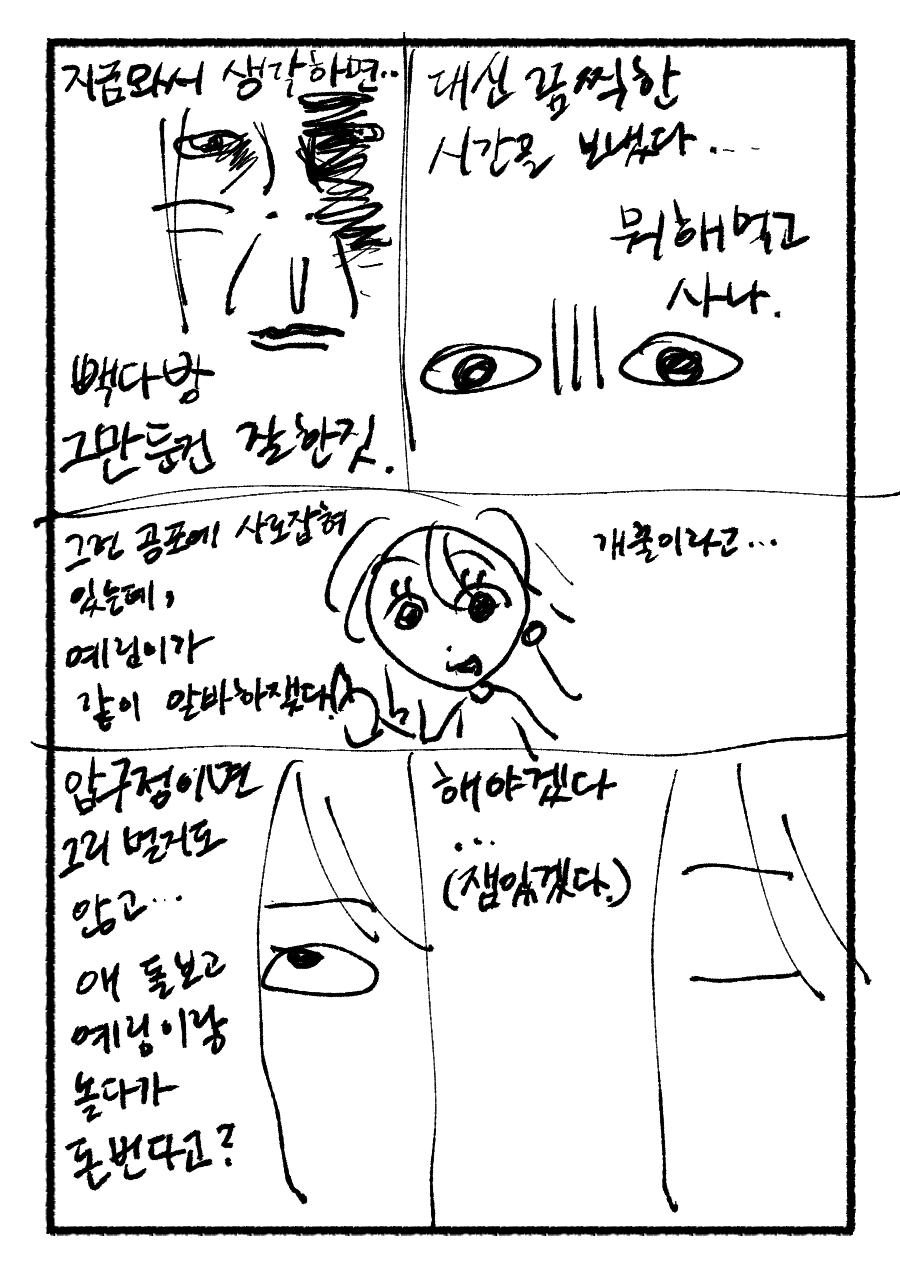 지금와서 생각하면..
빽다방
그만둔건 잘한짓.
대신 끔찍한
시간을 보냈다...
뭐해먹고
사나.
그런 공포에 사로잡혀
있는데,
예림이가
같이 알바하쟀다!
개꿀이라고...
압구정이면
그리 멀거도
않고...
애 돌보고
예림이랑
놀다가
돈번다고?
해야겠다
...
(잼있겠다.)